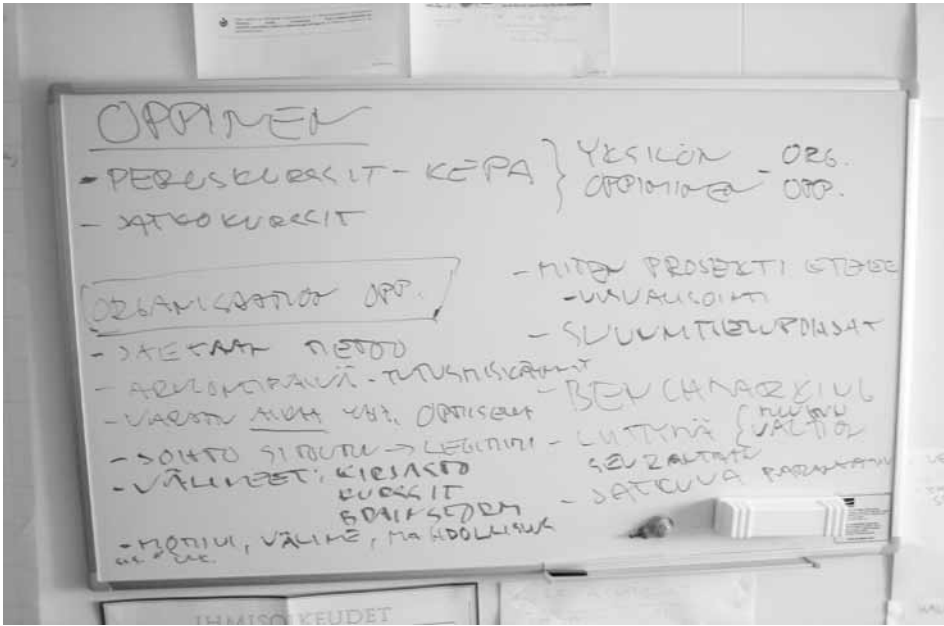 OPPIMEN
- PERUSKURSSIT - KEPA } YKSILÖN OPPIMINEN - ORG. OPP.
- JATKOKURSSIT
ORGANISAATION OPP.
- JAETAAN TIETOO
- ARVIOINTIPÄIVÄ - TUTUSTUMISKÄYNNIT
- VARATAN AIKAA YHT. OPPISELM
- JOHTO SITOUTUU -> LEGITIMI
- VÄLINEET: KIRJASTO
KURSSIT
BRAINSTORM
- MOTIIVI, VÄLINE, MAHDOLLISUUS
- MITEN PROJEKTI ETENEE
- VISUALISOINTI
- SUUNNITTELUPOHJAT
- BENCHMARKING
- LIITTYMÄ { MUUHUN VALTION
SEURANTAAN
- JATKUVA PARANTAMIN
IHMISOIKEUDET